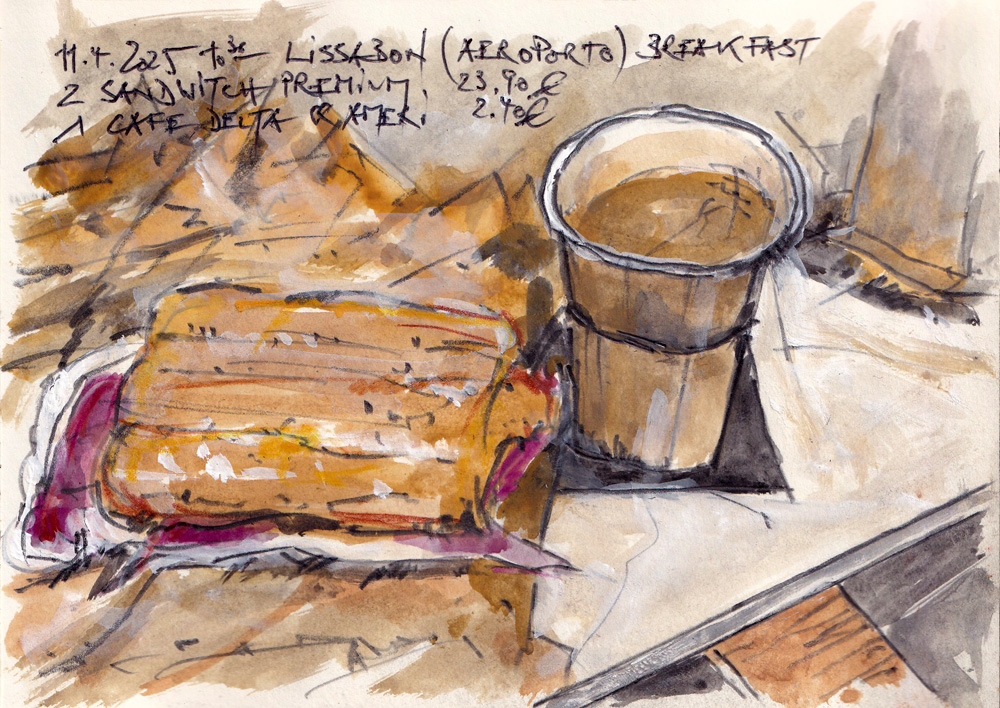 11.4.2025 10³⁰ LISSABON (AEROPORTO) BREAKFAST
2 SANDWITCH PREMIUM. 23,90 €
1 CAFE DELTA AMER. 2.40€